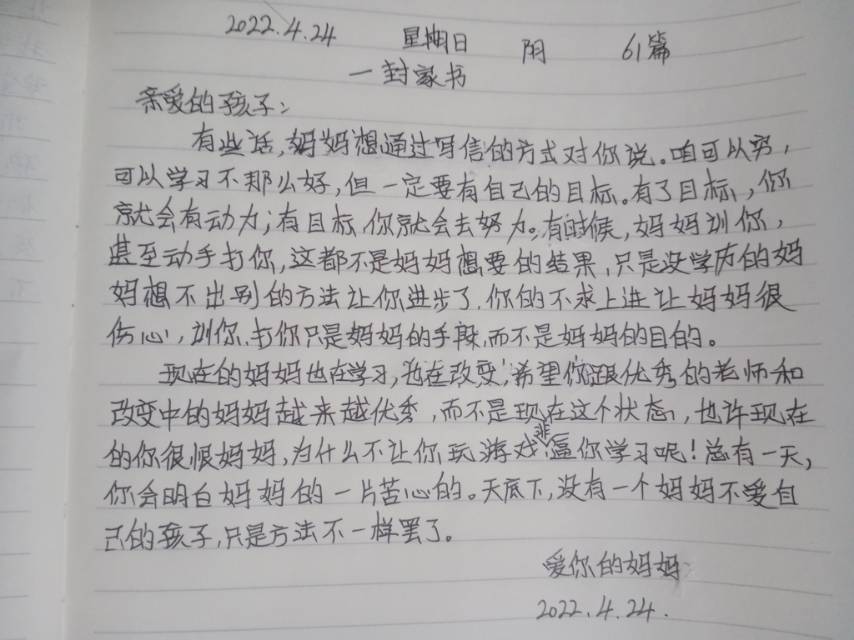 2022.4.24 星期日 阴 61篇
一封家书
亲爱的孩子:
有些话,妈妈想通过写信的方式对你说。咱可以穷,
可以学习不那么好,但一定要有自己的目标。有了目标,你
就会有动力;有目标,你就会去努力。有时候,妈妈训你,
甚至动手打你,这都不是妈妈想要的结果,只是没学历的妈
妈想不出别的方法让你进步了,你的不求上进让妈妈很
伤心,训你、打你只是妈妈的手段,而不是妈妈的目的。
现在的妈妈也在学习,也在改变,希望你跟优秀的老师和
改变中的妈妈越来越优秀,而不是现在这个状态,也许现在
的你很恨妈妈,为什么不让你玩游戏,非逼你学习呢!总有一天,
你会明白妈妈的一片苦心的。天底下,没有一个妈妈不爱自
己的孩子,只是方法不一样罢了。
爱你的妈妈
2022.4.24.